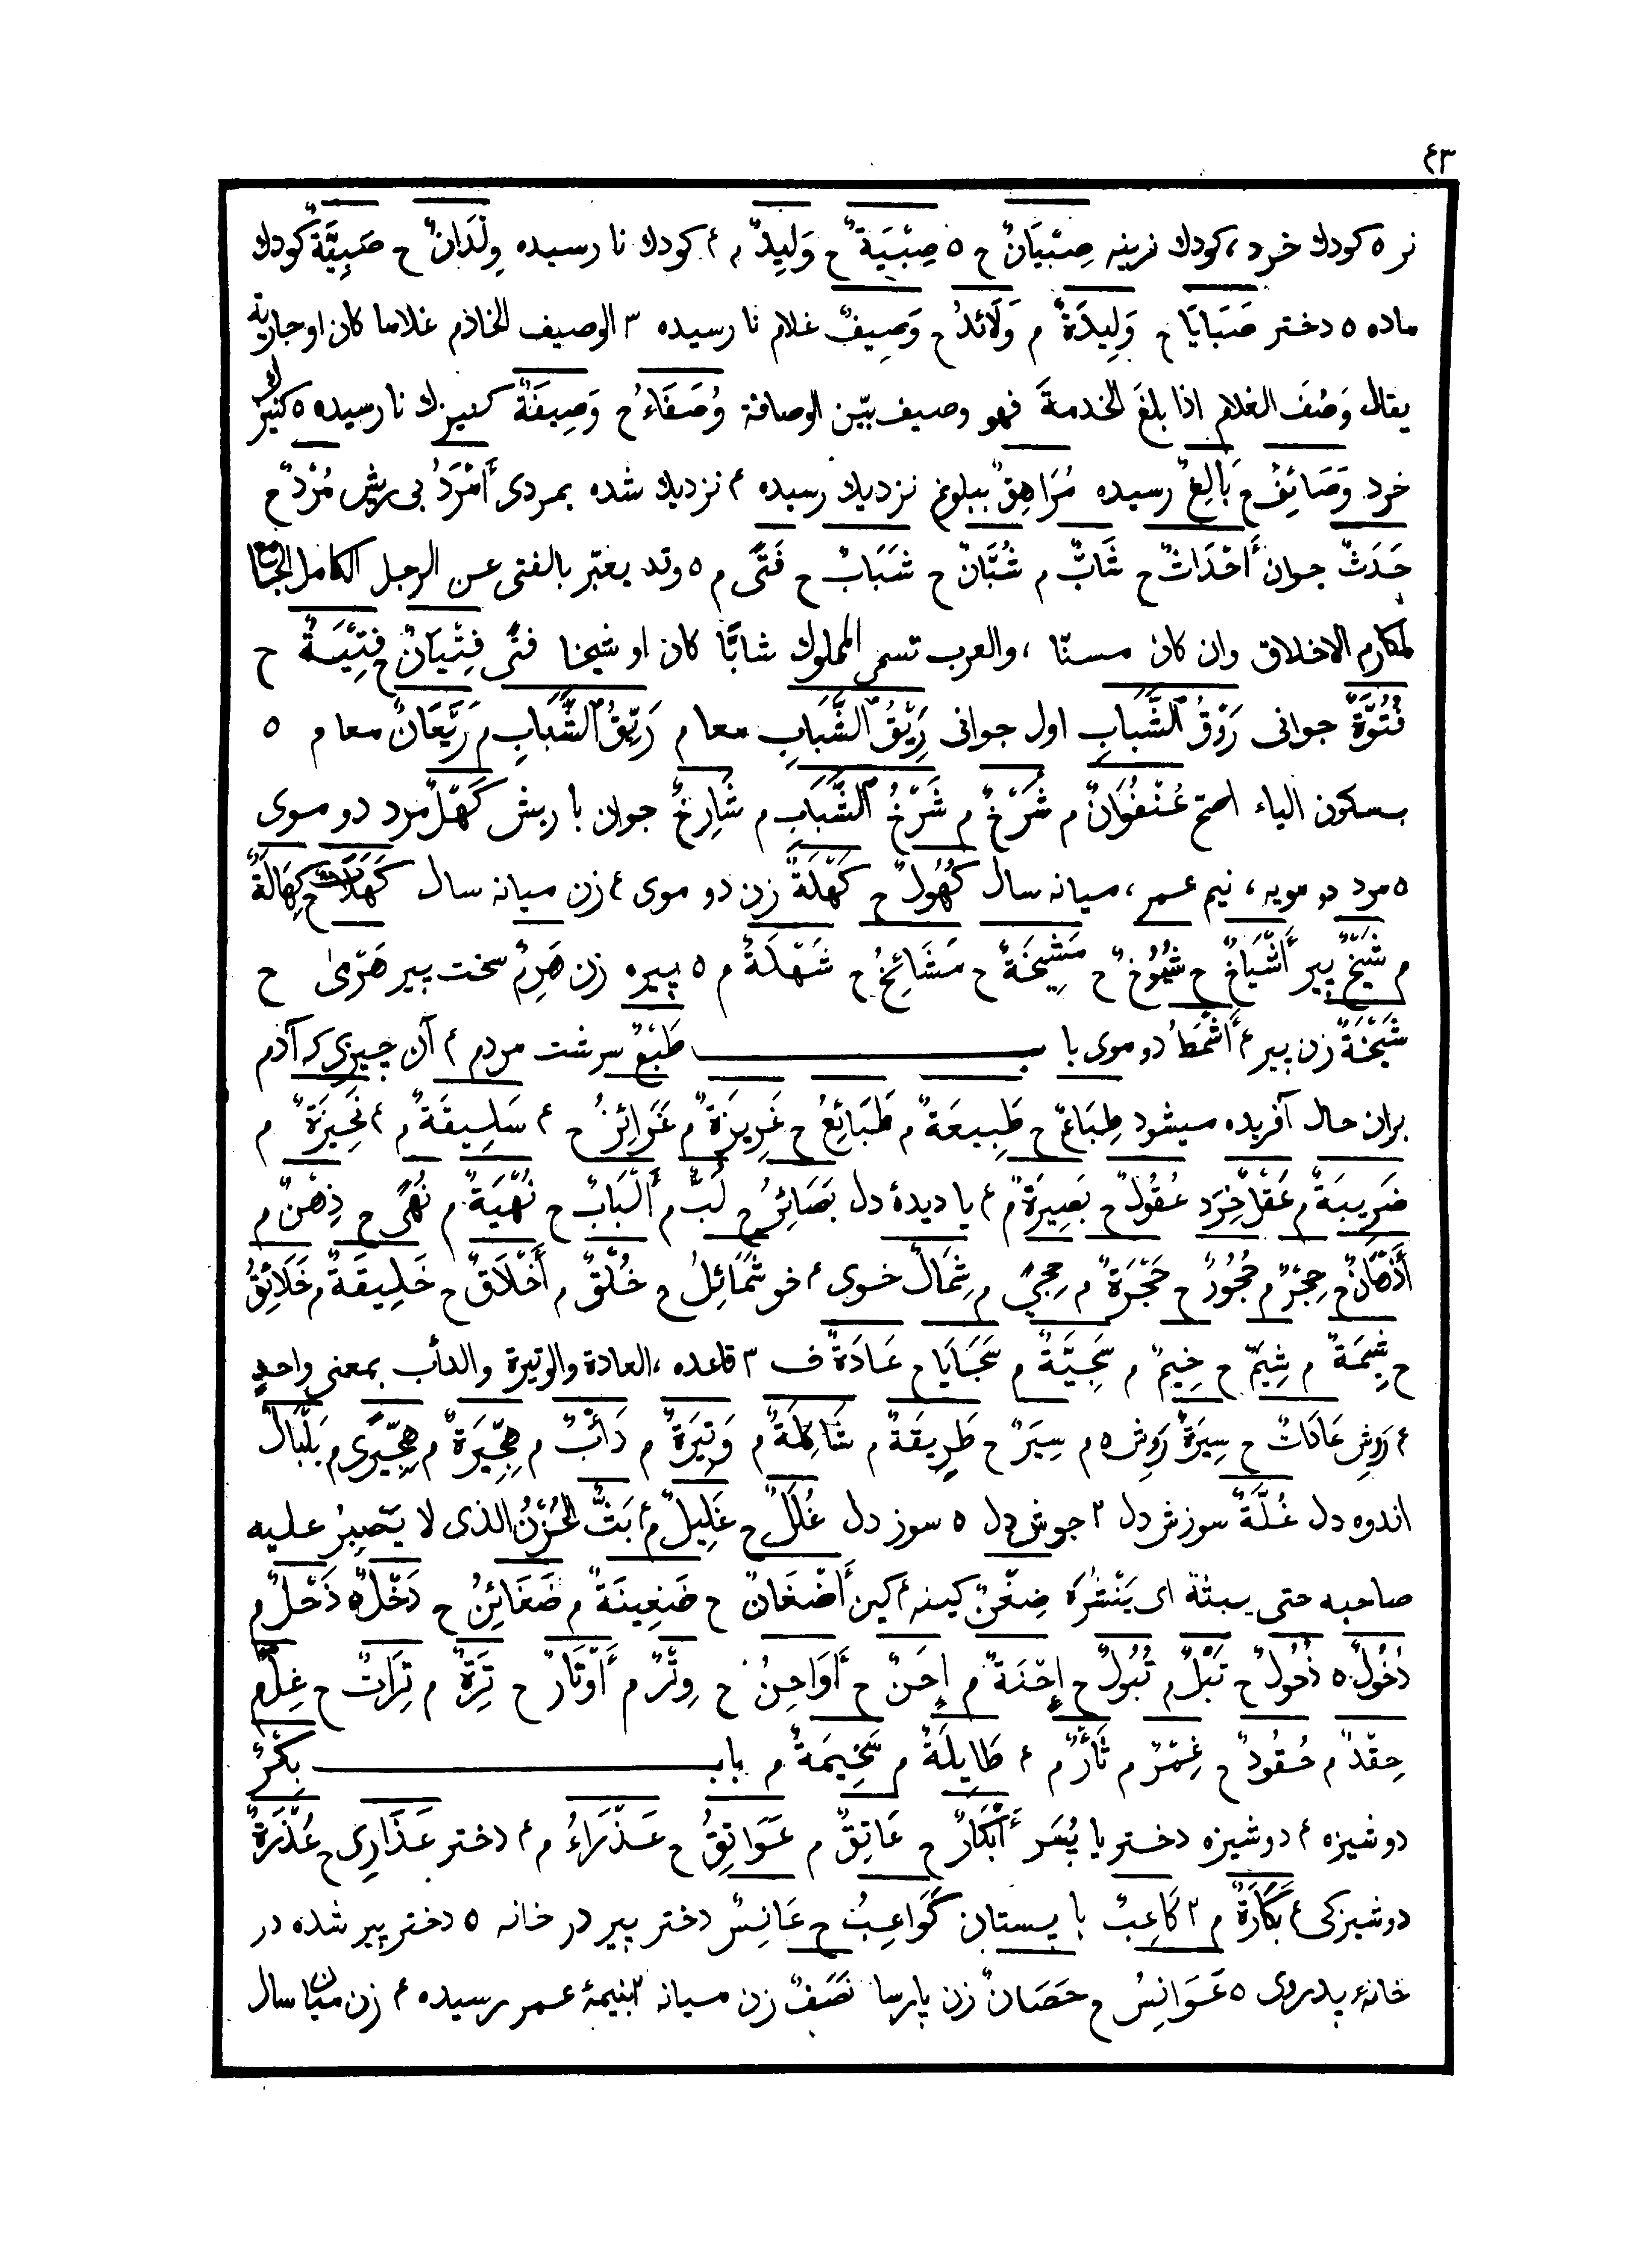 ۴۳
نر ٥ کودك خرد ، کودك نرینه صِبْیَانٌ ح ٥ صِبْیَةٌ ح وَلِیدٌ م ۴ کودك نا رسیده وِلْدَانٌ ح صَبِیَّةٌ کودك
ماده ٥ دختر صَبَایَا ح وَلِیدَةٌ م وَلَائدُ ح وَصِیفٌ غلام نا رسیده ۳ الوصیف الخادم غلاما کان او جاریة
یقال وَصُفَ الغلام اذا بلغَ الخدمةَ فهو وصیف بیّن الوصافة وُصَفَاءُ ح وَصِیفَةٌ کنیزك نا رسیده ٥ کنیزك
خرد وَصَائِفُ ح بَالِغٌ رسیده مُرَاهِقٌ ببلوغ نزدیك رسیده ۴ نزدیك شده بمردی أَمْرَدُ بی ریش مُرْدٌ ح
حَدَثٌ جوان أَحْدَاثٌ ح شَابٌّ م شُبَّانٌ ح شَبَابٌ ح فَتًى م ٥ وقد یعبّر بالفتى عن الرجل الکامل الجامع
لمکارم الاخلاق وان کان مسنّا ، والعرب تسمی المملوك شابًّا کان او شیخا فتًى فِتْیَانٌ ح فِتْیَةٌ ح
فُتُوَّةٌ جوانی رَوْقُ الشَّبَابِ اول جوانی رَیْقُ الشَّبَابِ معا م رَیِّقُ الشَّبَابِ م رَیْعَانٌ معا م ٥
بسکون الیاء اصح عُنْفُوَانٌ م شَرْخٌ م شَرْخُ الشَّبَابِ م شَارِخٌ جوان با ریش کَهْلٌ مرد دو موی
٥ مرد دو مویه ، نیم عمر ، میانه سال کُهُولٌ ح کَهْلَةٌ زن دو موی ۴ زن میانه سال کَهَلَاتٌ ح کِهَالَةٌ
م شَیْخٌ پیر أَشْیَاخٌ ح شُیُوخٌ ح مَشِیخَةٌ ح مَشَائِخُ ح شَهْلَةٌ م ٥ پیره زن هَرِمٌ سخت پیر هَرْمَىٰ ح
شَیْخَةٌ زن پیر ۴ أَشْمَطُ دو موی باب طَبْعٌ سرشت مردم ۴ آن چیزی که آدم
بران حال آفریده میشود طِبَاعٌ ح طَبِیعَةٌ م طَبَائِعُ ح غَرِیزَةٌ م غَرَائِزُ ح ۴ سَلِیقَةٌ م ۴ نَحِیزَةٌ م
ضَرِیبَةٌ م عَقْلٌ خِرَد عُقُولٌ ح بَصِیرَةٌ م ۴ یا دیدۀ دل بَصَائِرُ ح لُبٌّ م أَلْبَابٌ ح نُهْیَةٌ م نُهًى ح ذِهْنٌ م
أَذْهَانٌ ح حِجْرٌ م حُجُورٌ ح حَجْرَةٌ م حِجًى م شِمَالٌ خوی ۴ خو شَمَائِلُ ح خُلْقٌ م أَخْلَاقٌ ح خَلِیقَةٌ م خَلَائِقُ
ح شِیمَةٌ م شِیَمٌ ح خِیمٌ م سَجِیَّةٌ م سَجَایَا ح عَادَةٌ ف ۳ قاعده ، العادة والوتیرة والدأب بمعنى واحدٍ
۴ رَوِش عَادَاتٌ ح سِیرَةٌ رَوِش ٥ م سِیَرٌ ح طَرِیقَةٌ م شَاکِلَةٌ م وَتِیرَةٌ م دَأْبٌ م هِجِّیرَةٌ م هِجِّیرَى م بَلْبَالٌ
اندوه دل غُلَّةٌ سوزش دل ۲ جوش دل ٥ سوز دل غُلَلٌ ح غَلِیلٌ م ۴ بَثٌّ الحُزْنُ الذی لا یَصْبِرُ علیه
صاحبه حتى یبثه ای یَنْشُرَهُ ضِغْنٌ کینه ۴ کین أَضْغَانٌ ح ضَغِینَةٌ م ضَغَائِنُ ح دَخْلٌ ٥ ذَحْلٌ م
دُخُولٌ ٥ ذُحُولٌ ح تَبْلٌ م تُبُولٌ ح إِحْنَةٌ م إِحَنٌ ح أَوَاحِنُ ح وِتْرٌ م أَوْتَارٌ ح تِرَةٌ م تِرَاتٌ ح غِلٌّ م
حِقْدٌ م حُقُودٌ ح غِمْرٌ م ثَأْرٌ م ۴ طَایِلَةٌ م سَخِیمَةٌ م باب بِکْرٌ
دوشیزه ۴ دوشیزه دختر یا پُسَر أَبْکَارٌ ح عَاتِقٌ م عَوَاتِقُ ح عَذْرَاءُ م ۴ دختر عَذَارِى ح عُذْرَةٌ
دوشیزکی ۴ بَکَارَةٌ م ۲ کَاعِبٌ با پستان کَوَاعِبُ ح عَانِسٌ دختر پیر در خانه ٥ دختر پیر شده در
خانۀ پدروی ٥ عَوَانِسُ ح حَصَانٌ زن پارسا نَصَفٌ زن میانه ۲ بنیمۀ عمر رسیده ۴ زن میان سال